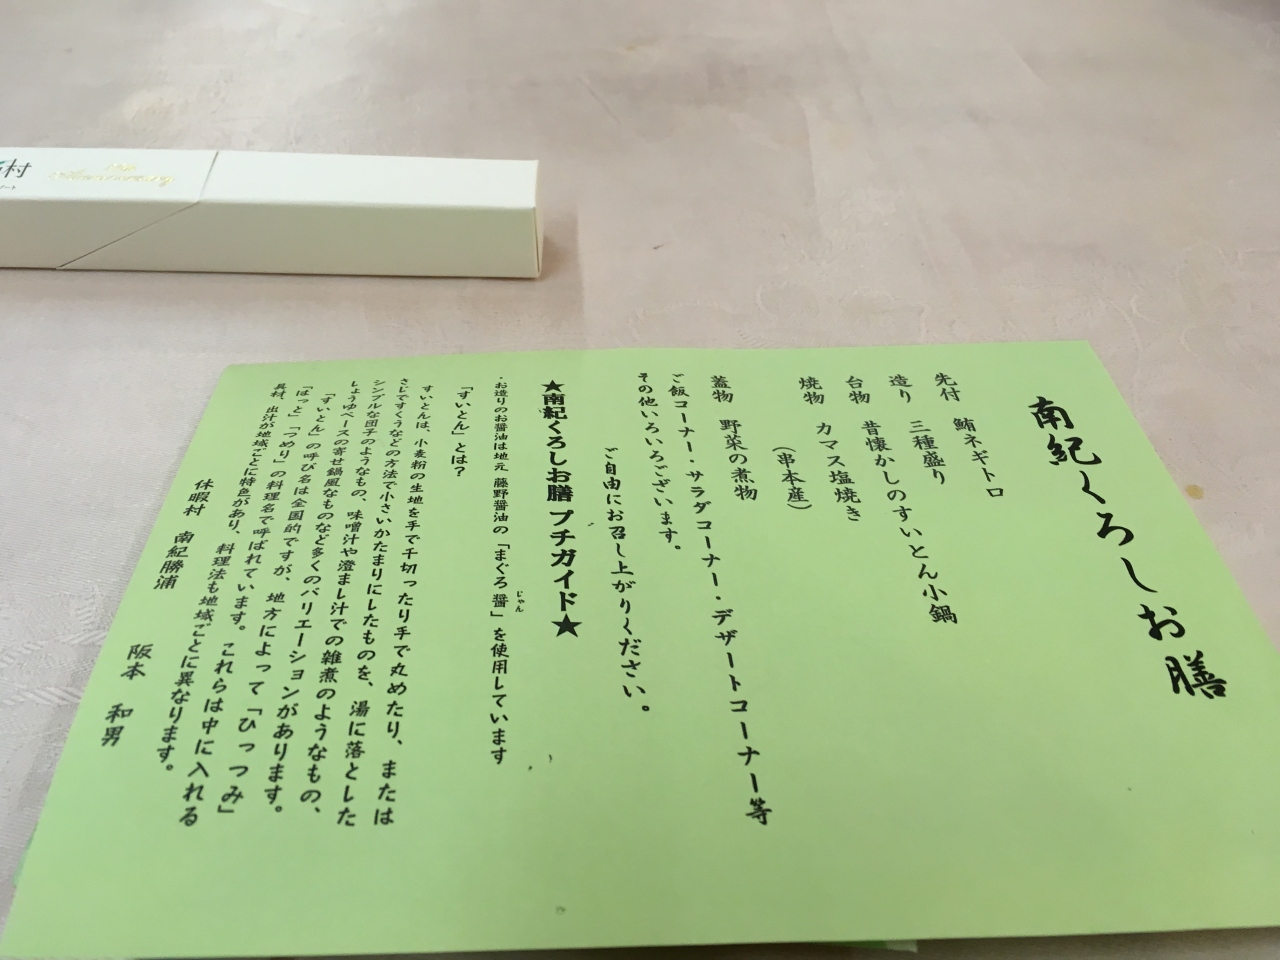 南紀くろしお膳
先付　鮪ネギトロ
造り　三種盛り
台物　昔懐かしのすいとん小鍋
焼物　カマス塩焼き
（串本産）
蓋物　野菜の煮物
ご飯コーナー・サラダコーナー・デザートコーナー等
その他いろいろございます。
ご自由にお召し上がりください。
★南紀くろしお膳 プチガイド★
・お造りのお醤油は地元 藤野醤油の「まぐろ醤」を使用しています
じゃん
「すいとん」とは？
すいとんは、小麦粉の生地を手で千切ったり手で丸めたり、または
さじですくうなどの方法で小さいかたまりにしたものを、湯に落とした
シンプルな団子のようなもの、味噌汁や澄まし汁での雑煮のようなもの、
しょうゆベースの寄せ鍋風なものなど多くのバリエーションがあります。
「すいとん」の呼び名は全国的ですが、地方によって「ひっつみ」
「はっと」「つめり」の料理名で呼ばれています。これらは中に入れる
具材、出汁が地域ごとに特色があり、料理法も地域ごとに異なります。
休暇村　南紀勝浦　　阪本　和男
村
Anniversary